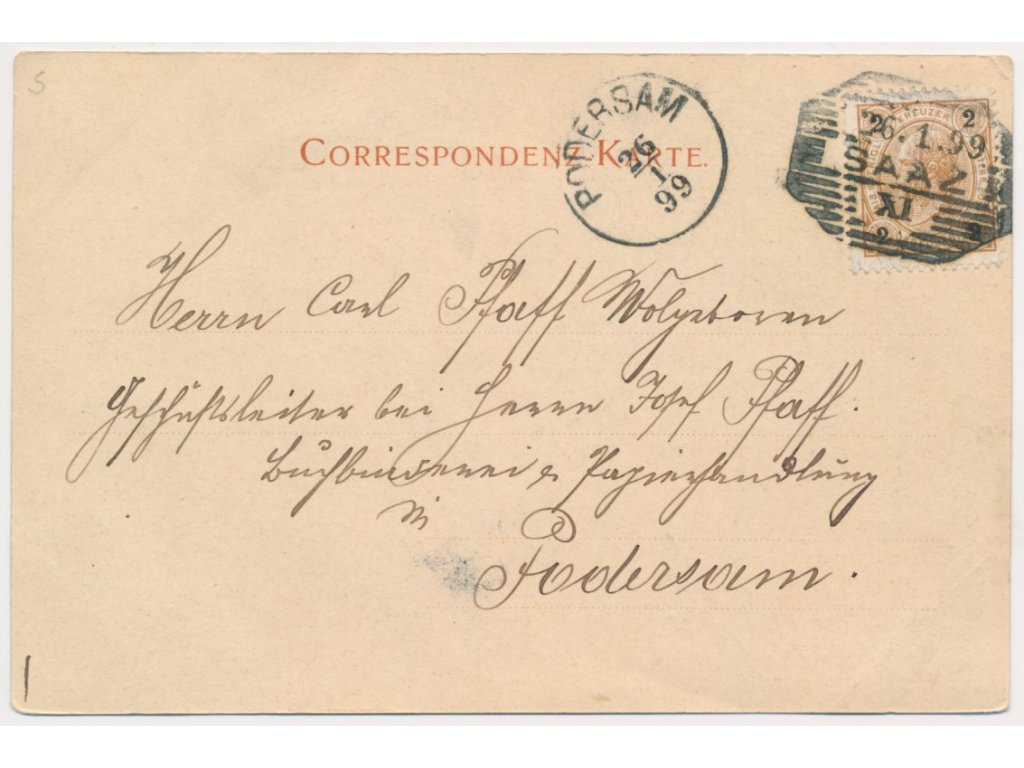 S
CORRESPONDENZ-KARTE.
PODERSAM
26
1
99
2 KREUZER 2
26.1.99
SAAZ
XI
2 2
Herrn Carl Pfaff Wolgeboren
Geschäftsleiter bei Herrn Josef Pfaff.
Buchbinderei & Papierhandlung
in
Podersam.